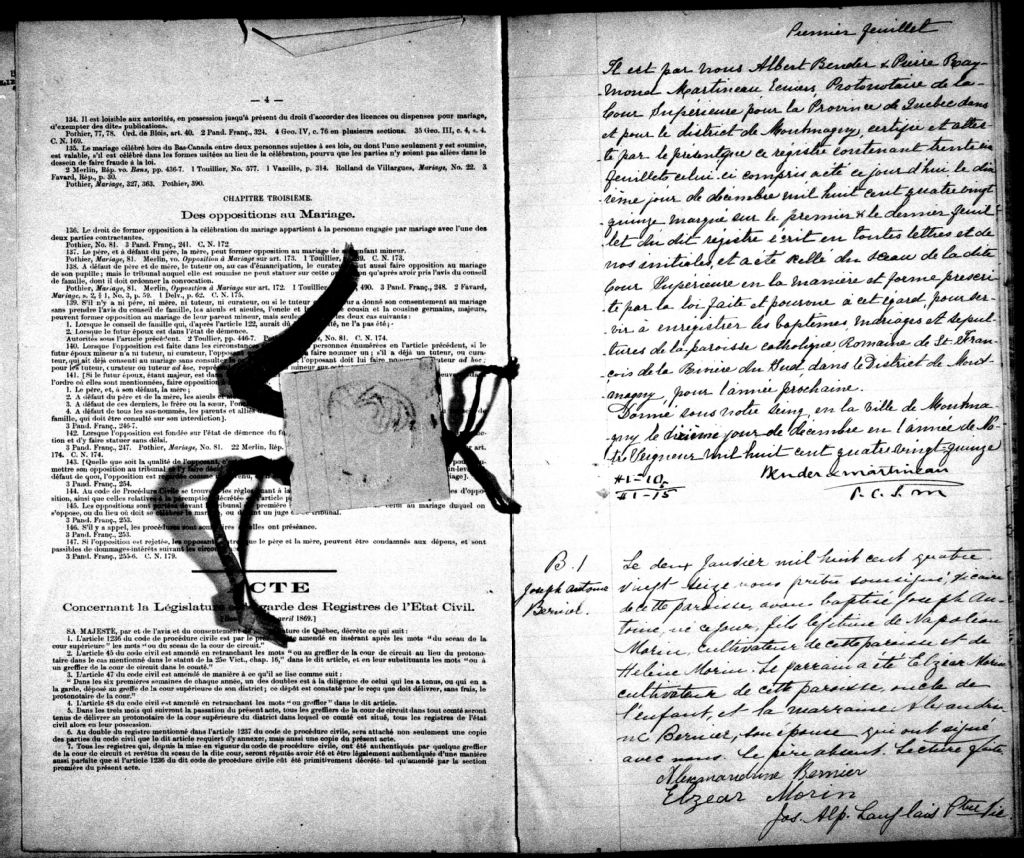 — 4 —
134. Il est loisible aux autorités, en possession jusqu'à présent du droit d'accorder des licences ou dispenses pour mariage,
d'exempter des dites publications.
Pothier, 77, 78. Ord. de Blois, art. 40. 2 Pand. Franç., 324. 4 Geo. IV, c. 76 en plusieurs sections. 35 Geo. III, c. 4, s. 4.
C. N. 169.
135. Le mariage célébré hors du Bas-Canada entre deux personnes sujettes à ses lois, ou dont l'une seulement y est soumise,
est valable, s'il est célébré dans les formes usitées au lieu de la célébration, pourvu que les parties n'y soient pas allées dans le
dessein de faire fraude à la loi.
2 Merlin, Rép. vo. Bans, pp. 436-7. 1 Touillier, No. 577. 1 Vazeille, p. 314. Rolland de Villargues, Mariage, No. 22. 3
Favard, Rép., p. 50.
Pothier, Mariage, 327, 363. Pothier, 390.
CHAPITRE TROISIÈME.
Des oppositions au Mariage.
136. Le droit de former opposition à la célébration du mariage appartient à la personne engagée par mariage avec l'une des
deux parties contractantes.
Pothier, No. 81. 3 Pand. Franç., 241. C. N. 172
137. Le père, et à défaut du père, la mère, peut former opposition au mariage de enfant mineur.
Pothier, Mariage, 81. Merlin, vo. Opposition à Mariage sur art. 173. 1 Touillier, C. N. 173.
138. A défaut de père et de mère, le tuteur ou, au cas d'émancipation, le curateur aussi faire opposition au mariage
de son pupille; mais le tribunal auquel elle est soumise ne peut statuer sur cette qu'après avoir pris l'avis du conseil
de famille, dont il doit ordonner la convocation.
Pothier, Mariage, 81. Merlin, Opposition à Mariage sur art. 172. 1 Touillier, 490. 3 Pand. Franç., 248. 2 Favard,
Mariage, s. 2, § 1, No. 3, p. 59. 1 Delv., p. 62. C. N. 175.
139. S'il n'y a ni père, ni mère, ni tuteur, ni curateur, ou si le tuteur a donné son consentement au mariage
sans prendre l'avis du conseil de famille, les aïeuls et aïeules, l'oncle et cousin et la cousine germains, majeurs,
peuvent former opposition au mariage de leur parent mineur, mais seulement deux cas suivants:
1. Lorsque le conseil de famille qui, d'après l'article 122, aurait dû ne l'a pas été;
2. Lorsque le futur époux est dans l'état de démence
Autorités sous l'article précédent. 2 Toullier, pp. 446-7. No. 81. C. N. 174.
140. Lorsque l'opposition est faite dans les circonstances énoncées en l'article précédent, si le
futur époux mineur n'a ni tuteur, ni curateur, l'opposant faire nommer un; s'il a déjà un tuteur, ou curateur,
qui ait déjà consenti au mariage sans consulter l'opposant doit lui faire ad hoc,
pour les tuteur, curateur ou tuteur ad hoc, mineur
141. [Si le futur époux, étant majeur, est
l'ordre où elles sont mentionnées, faire opposition
1. Le père, et, à son défaut, la mère;
2. A défaut du père et de la mère, les aïeuls et
3. A défaut de ces derniers, le frère ou la sœur,
4. A défaut de tous les sus-nommés, les parents et alliés
famille, qui doit être consulté sur son interdiction.]
3 Pand. Franç., 246-7.
142. Lorsque l'opposition est fondée sur l'état de démence du
tion et d'y faire statuer sans délai.
3 Pand. Franç., 247. Pothier, Mariage, No. 81. 22 Merlin, Rép.
174. C. N. 174.
143. [Quelle que soit la qualité de l'opposant,
mettre son opposition au tribunal
défaut de quoi, l'opposition est
3 Pand. Franç., 254.
144. Au code de Procédure Civile se trouvent les règles
sition, ainsi que celles relatives à
145. Les oppositions sont portées devant le tribunal celui au mariage duquel on
s'oppose, ou du lieu où doit se célébrer le mariage, ou devant un juge de tribunal.
3 Pand. Franç., 253.
146. S'il y a appel, les procédures sont elles ont préséance.
3 Pand. Franç., 253.
147. Si l'opposition est rejetée, les opposants, autres que le père et la mère, peuvent être condamnés aux dépens, et sont
passibles de dommages-intérêts suivant les circonstances.
3 Pand. Franç., 255-6. C. N. 179.
ACTE
Concernant la Législature garde des Registres de l'Etat Civil.
avril 1869.]
SA MAJESTE, par et de l'avis et du consentement de la Législature de Québec, décrète ce qui suit:
1. L'article 1236 du code de procédure civile est par le présent amendé en insérant après les mots "du sceau de la
cour supérieure" les mots "ou du sceau de la cour de circuit."
2. L'article 45 du code civil est amendé en retranchant les mots "ou au greffier de la cour de circuit au lieu du protono-
taire dans le cas mentionné dans le statut de la 25e Vict., chap. 16," dans le dit article, et en leur substituants les mots "ou à
un greffier de la cour de circuit dans le comté."
3. L'article 47 du code civil est amendé de manière à ce qu'il se lise comme suit:
"Dans les six premières semaines de chaque année, un des doubles est à la diligence de celui qui les a tenus, ou qui en a
la garde, déposé au greffe de la cour supérieure de son district; ce dépôt est constaté par le reçu que doit délivrer, sans frais, le
protonotaire de la cour."
4. L'article 48 du code civil est amendé en retranchant les mots "ou greffier" dans le dit article.
5. Dans les trois mois qui suivront la passation du présent acte, tous les greffiers de la cour de circuit dans tout comté seront
tenus de délivrer au protonotaire de la cour supérieure du district dans lequel ce comté est situé, tous les registres de l'état
civil alors en leur possession.
6. Au double du registre mentionné dans l'article 1237 du code de procédure civile, sera attaché non seulement une copie
des parties du code civil que le dit article requiert d'y annexer, mais aussi une copie du présent acte.
7. Tous les registres qui, depuis la mise en vigueur du code de procédure civile, ont été authentiqués par quelque greffier
de la cour de circuit et revêtus du sceau de la dite cour, seront réputés avoir été et être légalement authentiqués d'une manière
aussi parfaite que si l'article 1236 du dit code de procédure civile eût été primitivement décrété tel qu'amendé par la section
première du présent acte.
Premier feuillet
Il est par nous Albert Bender & Pierre Ray-
mond Martineau Ecuiers, Protonotaire de la
Cour Supérieure pour la Province de Quebec dans
et pour le district de Montmagny, certifié et attes-
té par le présent que ce registre contenant trente six
feuillets celui-ci compris a été ce jour d'hui le dix
ième jour de décembre mil huit cent quatre vingt
quinze marqué sur le premier & le dernier feuil-
let du dit registre écrit en toutes lettres et de
nos initiales, et a été scellé du sceau de la dite
Cour Supérieure en la manière et forme prescri-
te par la loi faite et pourvue à cet égard, pour ser-
vir à enregistrer les baptêmes, mariages et sépul-
tures de la paroisse catholique Romaine de St. Fran-
çois de la Rivière du Sud, dans le District de Mont-
magny, pour l'année prochaine.
Donné sous notre seing, en la Ville de Montma-
gny, le dixième jour de décembre en l'année de No-
tre Seigneur mil huit cent quatre vingt-quinze
Bender & Martineau
P. C. S. M
#1-10
#1-15
B. 1
Joseph Antoine
Bernier.
Le deux Janvier mil huit cent quatre
vingt-seize nous prêtre soussigné, vicaire
de cette paroisse, avons baptisé Joseph An-
toine, né ce jour, fils légitime de Napoléon
Morin, cultivateur de cette paroisse et de
Hélène Morin. Le parrain a été Elzéar Morin
cultivateur de cette paroisse, oncle de
l'enfant, et la marraine Alexandri-
ne Bernier, son épouse qui ont signé
avec nous. Le père absent. Lecture faite
Alexmandrine Bernier
Elzear Morin
Jos. Alp. Langlais Ptre Vic.